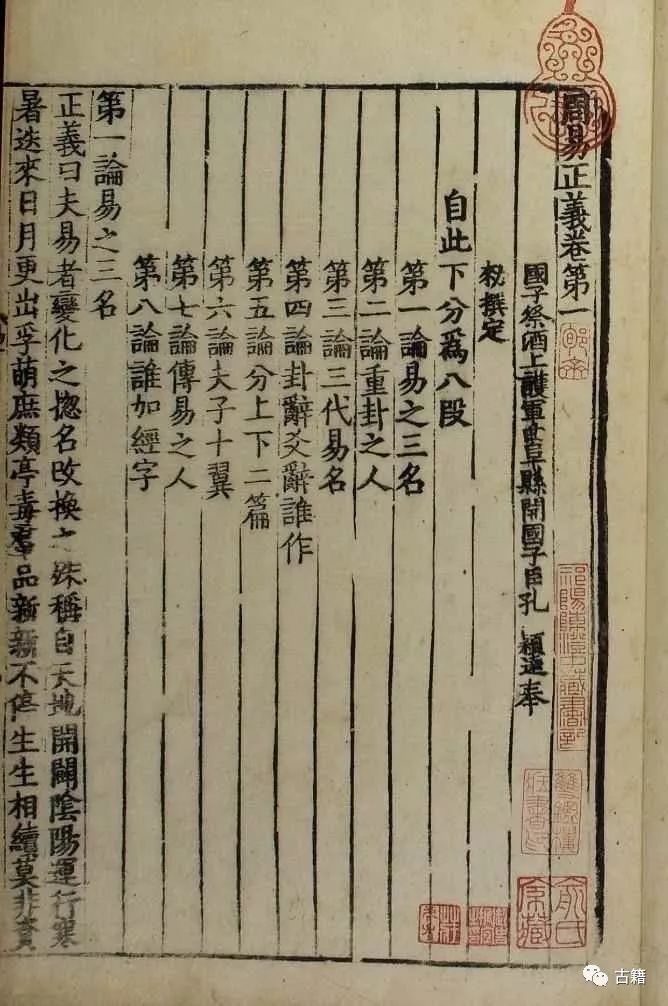 周易正義卷第一
國子祭酒上護軍曲阜縣開國子臣孔 穎達奉
勑撰定
自此下分爲八段
第一論易之三名
第二論重卦之人
第三論三代易名
第四論卦辭爻辭誰作
第五論分上下二篇
第六論夫子十翼
第七論傳易之人
第八論誰加經字
第一論易之三名
正義曰夫易者變化之揔名改換之殊稱自天地開闢陰陽運行寒
暑迭來日月更出孚萌庶類亭毒羣品新新不停生生相續莫非資
祁陽陳澄中藏書記
俞氏
家藏
古籍